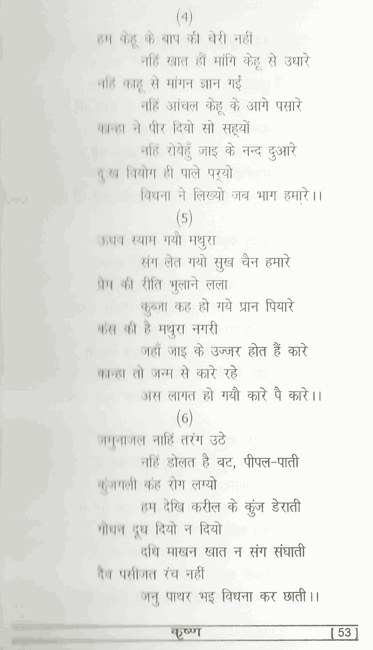 (4)
हम केहू के बाप की चेरी नहीं
नहिं खात हौं मांगि केहू से उधारे
नहिं काहू से मांगन ज्ञान गईं
नहिं आंचल केहू के आगे पसारे
कान्हा ने पीर दियो सो सह्यों
नहिं रोयेहुँ जाइ के नन्द दुआरे
दुःख वियोग ही पाले पर्‌यो
विधना ने लिख्यो जब भाग हमारे।।
(5)
ऊधव स्याम गयौ मथुरा
संग लेत गयो सुख चैन हमारे
प्रेम की रीति भुलाने लला
कुब्जा कह हो गये प्रान पियारे
कंस की है मथुरा नगरी
जहाँ जाइ के उज्जर होत हैं कारे
कान्हा तो जन्म से कारे रहे
अस लागत हो गयौ कारे पै कारे।।
(6)
जमुनाजल नाहिं तरंग उठे
नहिं डोलत है बट, पीपल-पाती
कुंजगली कंह रोग लग्यो
हम देखि करील के कुंज डेराती
गोधन दूध दियो न दियो
दधि माखन खात न संग संघाती
दैव पसीजत रंच नहीं
जनु पाथर भइ विधना कर छाती।।
कृष्ण [ 53 ]